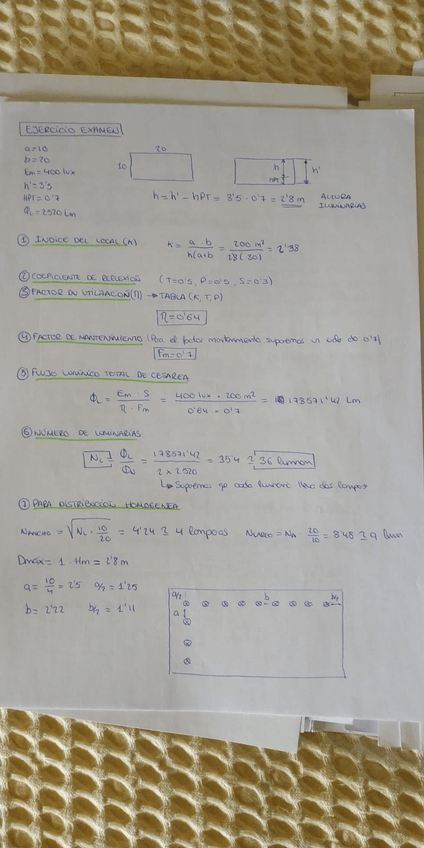 EJERCICIO EXAMEN
a=10
b=20
Em=400 lux
h'=3'5
HPT=0'7
ΦL=2520 Lm
20
10
h
HPT
h'
h = h' - HPT = 3'5 - 0'7 = 2'8 m ALTURA ILUMINARIAS
① INDICE DEL LOCAL (K) K = a · b / h(a+b = 200 m² / 2'8 (30) = 2'38
② COEFICIENTE DE REFLEXIÓN (T=0'5, P=0'5, S=0'3)
③ FACTOR DE UTILIZACION (η) → TABLA (K, T, P)
η=0'64
④ FACTOR DE MANTENIMIENTO (Para el factor mantenimiento suponemos un valor de 0'7)
Fm=0'7
⑤ FLUJO LUMINICO TOTAL DE CESAREA
ΦL = Em · S / η · Fm = 400 lux · 200 m² / 0'64 · 0'7 = 178571'42 Lm
⑥ NÚMERO DE LUMINARIAS
NL = ΦL / ΦN = 178571'42 / 2 x 2520 = 35'4 ≅ 36 lumin
↳ Suponemos qe cada luminaria lleva dos lamparas
⑦ PARA DISTRIBUCIÓN HOMOGENEA
NANCHO = √NL · 10/20 = 4'24 ≅ 4 lamparas NLARGO = NA 20/10 = 8'48 ≅ 9 lum
Dmax = 1 · Hm = 2'8 m
a = 10/4 = 2'5 a/2 = 1'25
b = 2'22 b/2 = 1'11
a/2
b
b/2
a